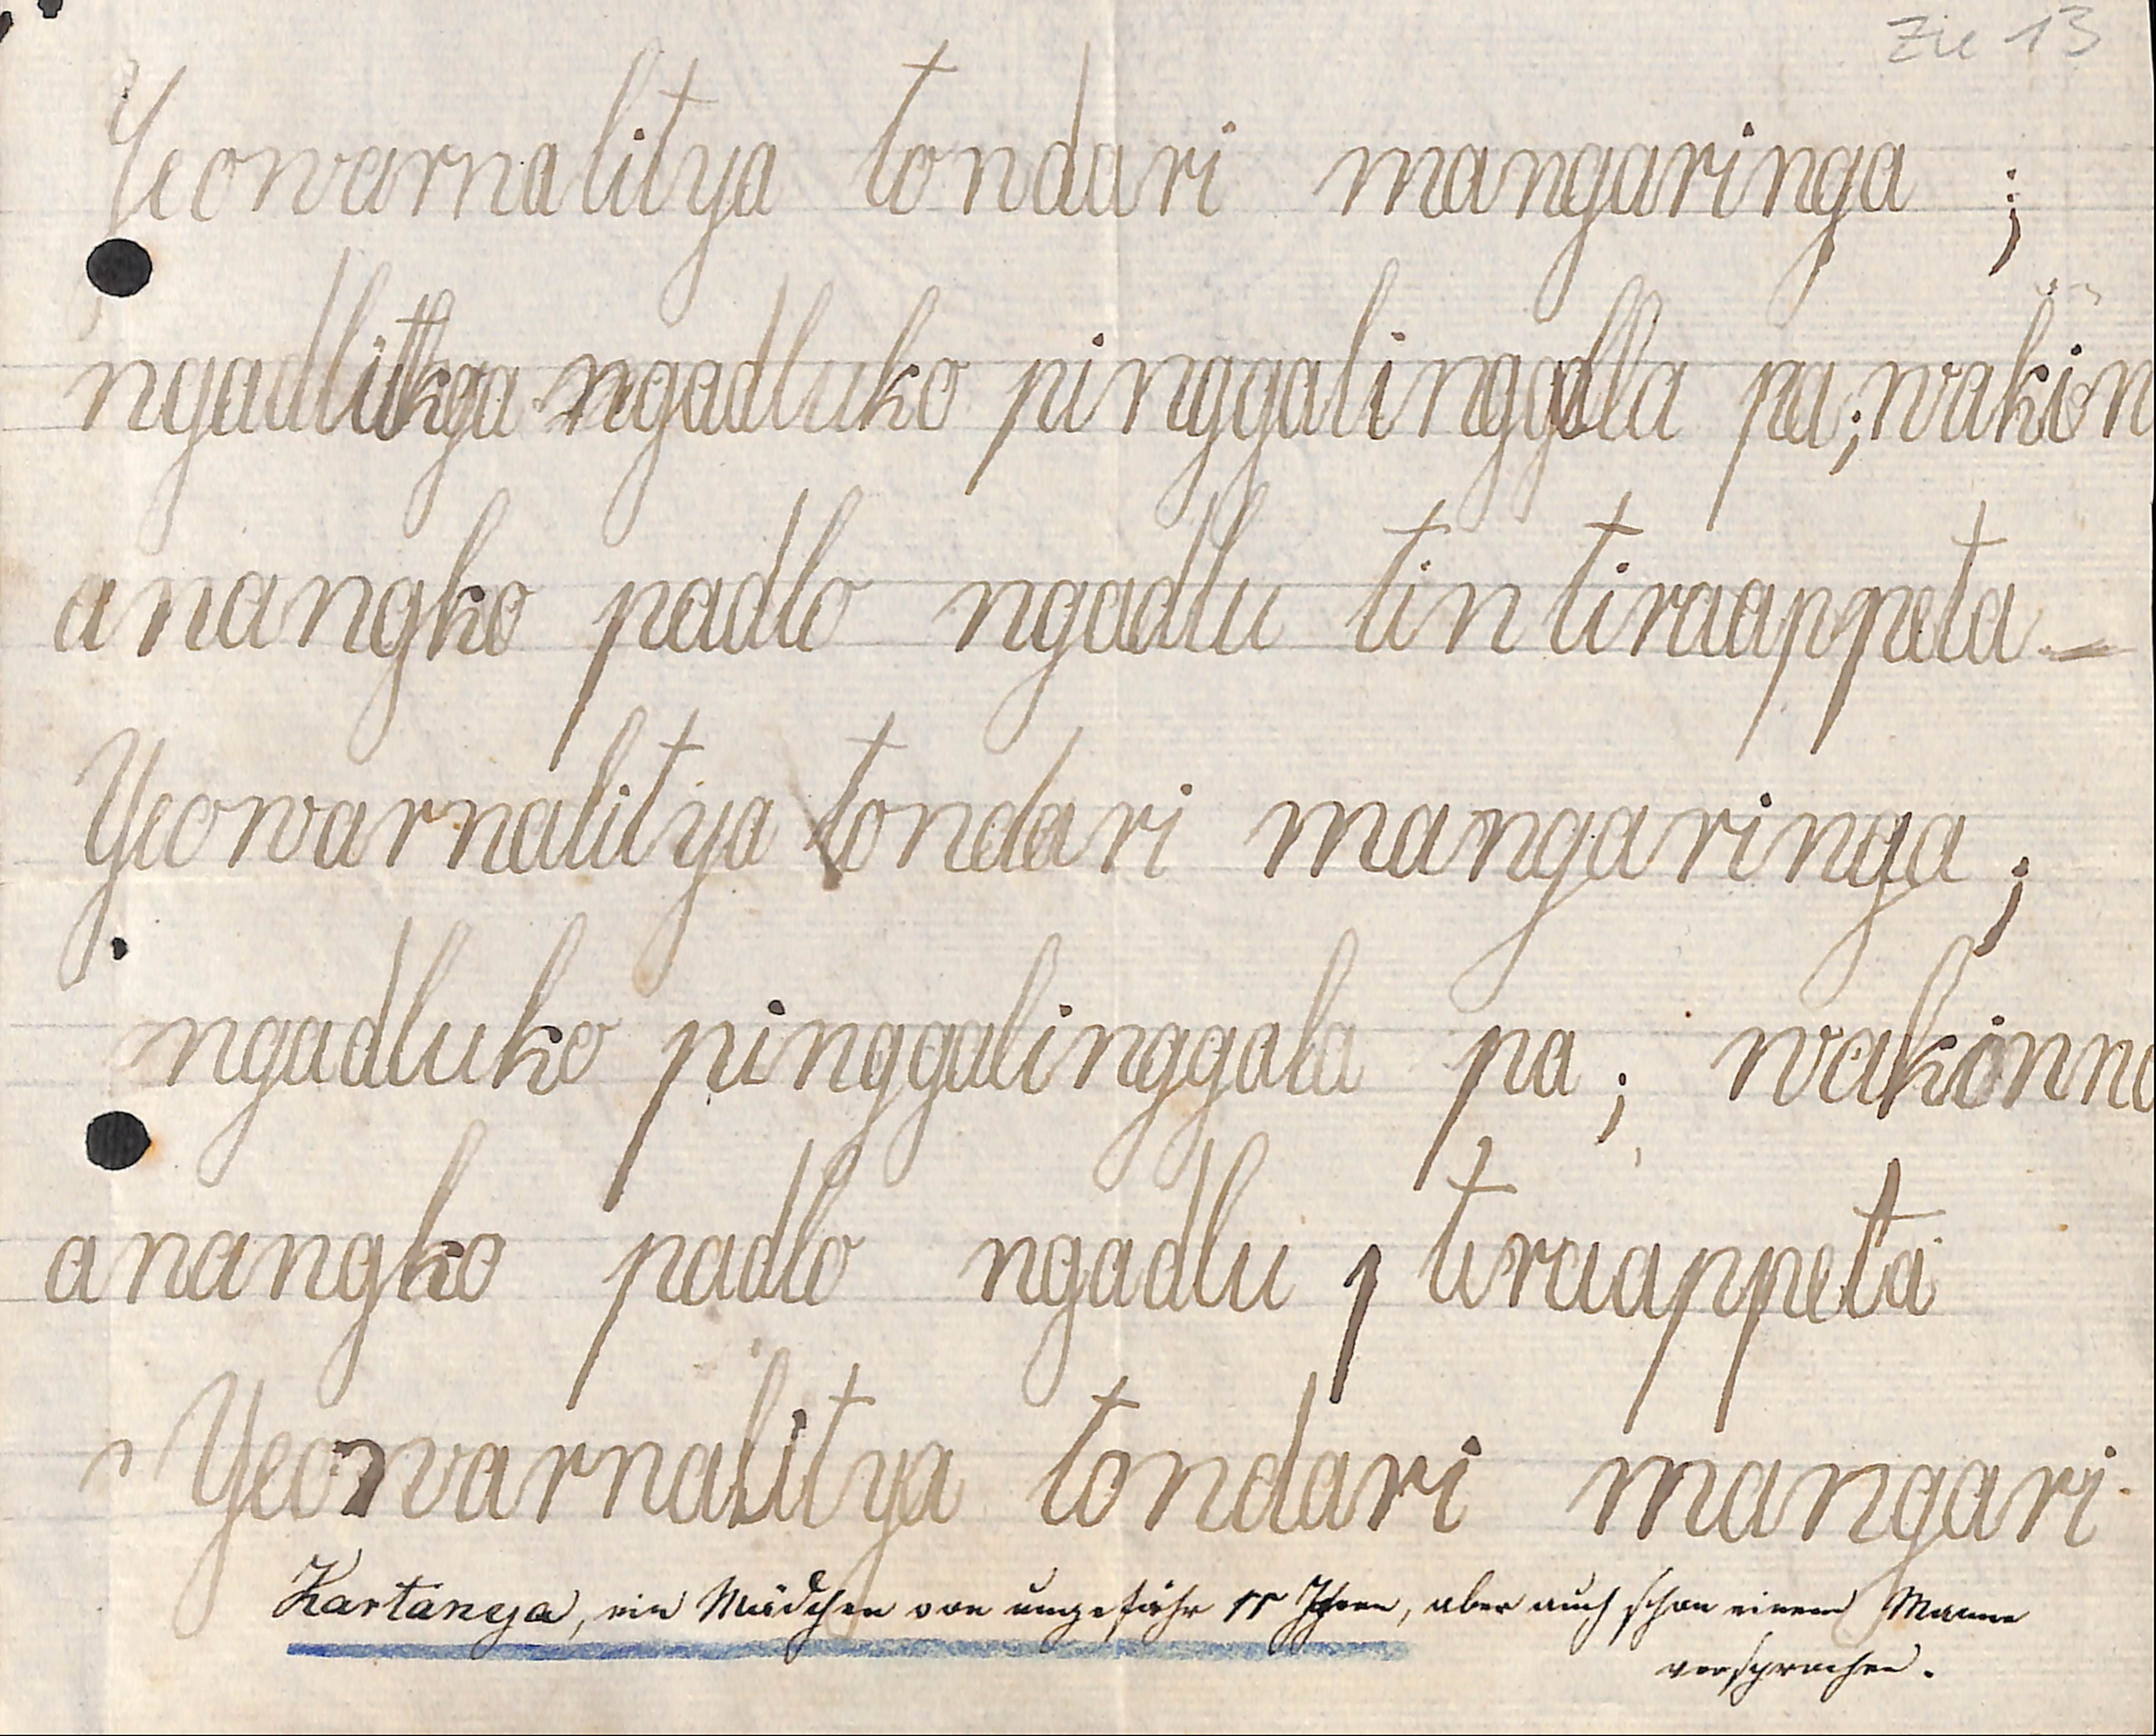 Zu 13
Yeowarnalitya tondari mangaringa ;
ngadluko pinggalinggalla pa; wakinn
anangko padlo ngadlu tintiraappeta –
Yeowarnalitya tondari mangaringa ;
ngadluko pinggalinggala pa ; wakinna
anangko padlo ngadlu tiraappeta
Yeowarnalitya tondari mangari
Kartanya, ein Mädchen von ungefähr 11 Jhren, aber auch schon einem Manne
versprochen.